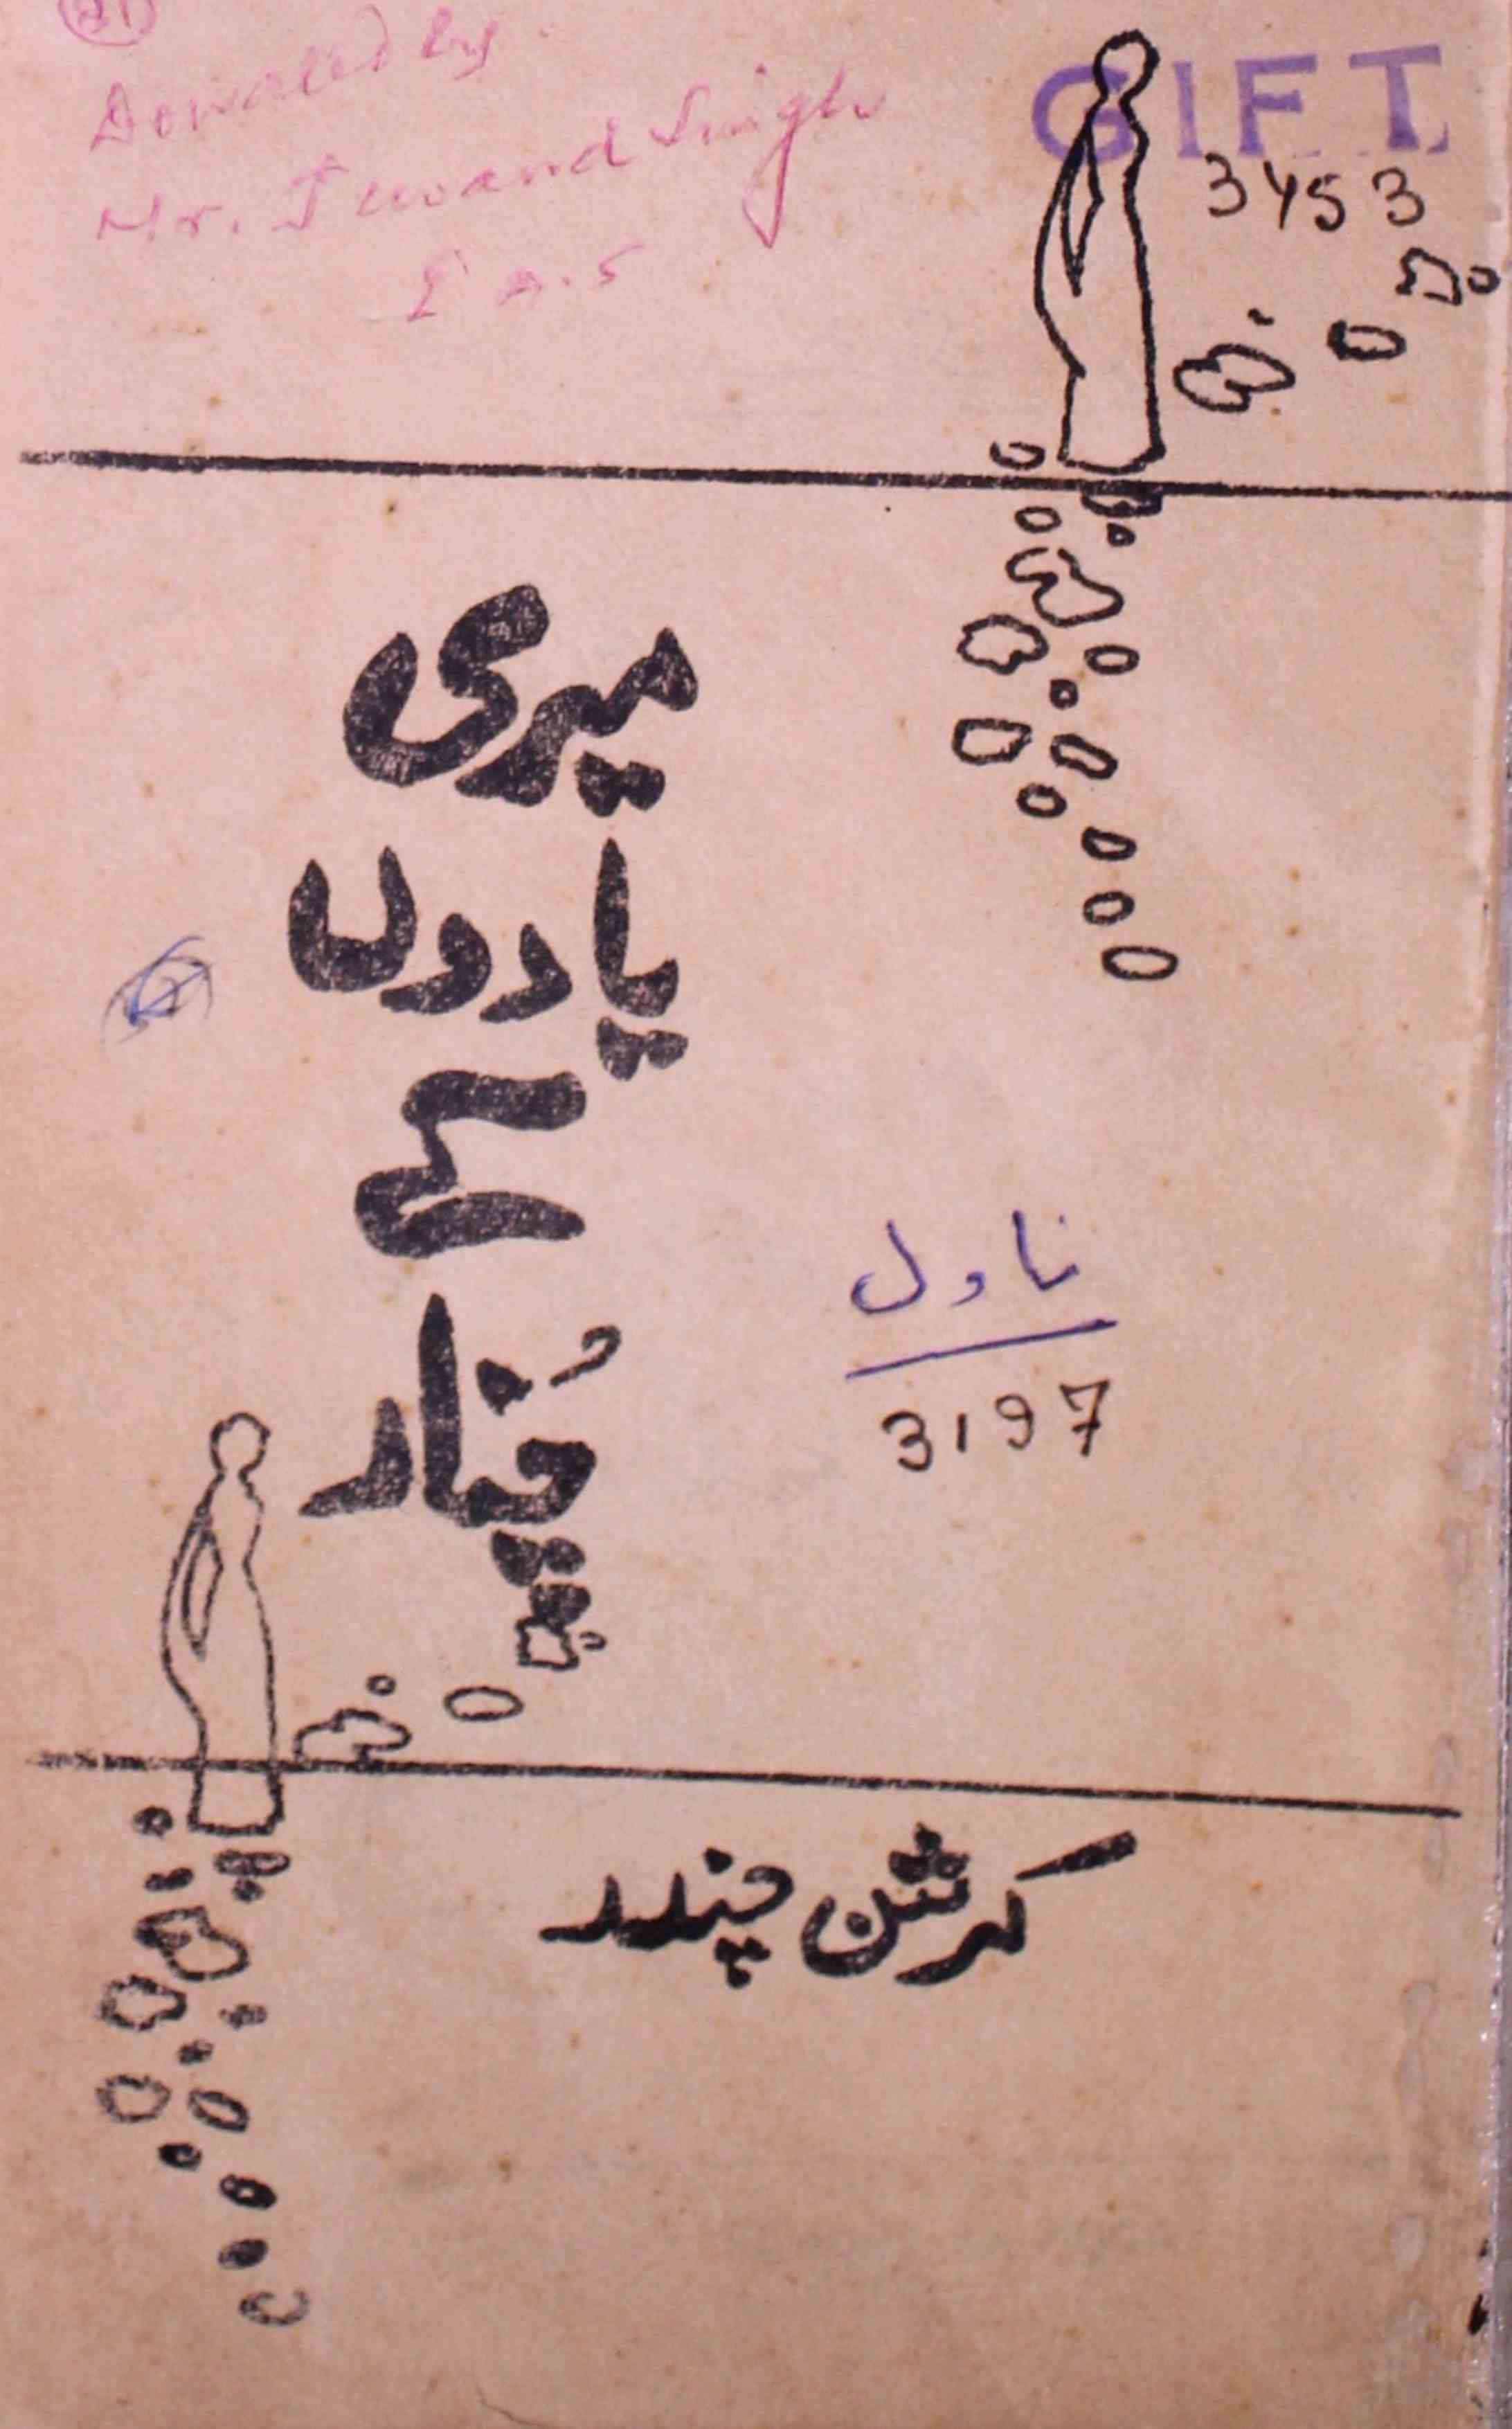 Donated by
Mr. Jiwand Singh
GIFT
3453
میری
یادوں
کے
چُنار
ناول
3197
کرشن چندر